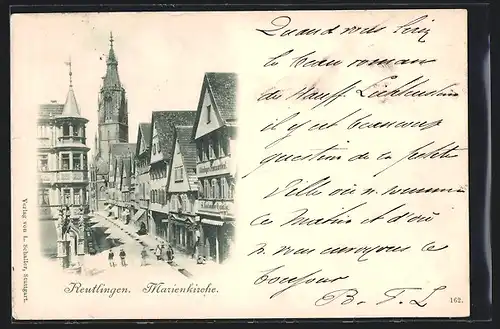 Quand vous lirez
le beau roman
de Hauff Lichtenstein
il y est beaucoup
question de la petite
Ville où ns sommes
ce matin et d'où
ns vous envoyons le
bonjour
B. T. L
Reutlingen. Marienkirche.
162.
Verlag von L. Schaller, Stuttgart.